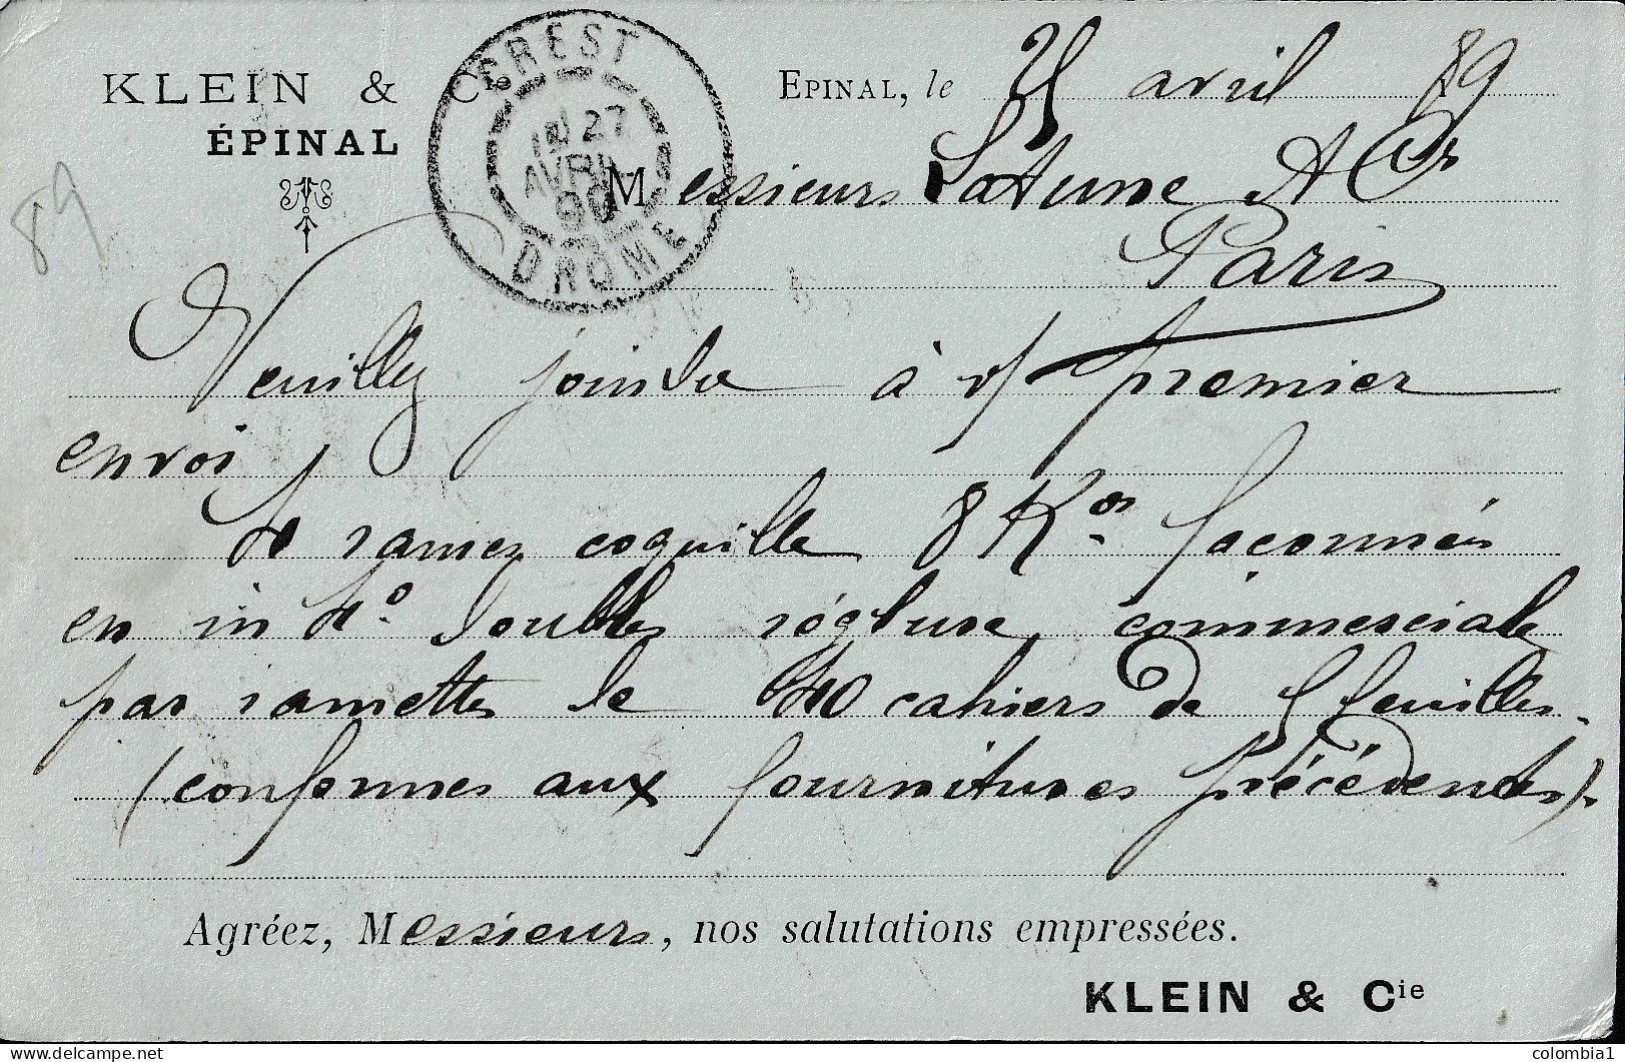 KLEIN & Cie
ÉPINAL
CREST
27
AVRIL
90
DROME
EPINAL, le 25 avril 89
89
Messieurs Latune & Cie
Paris
Veuillez joindre à v/ premier
envoi
10 rames coquille 8 Kos façonnés
en in 4o doubles réglure commerciale
par ramettes de 40 cahiers de 5 feuilles.
(conformes aux fournitures précédentes).
Agréez, Messieurs, nos salutations empressées.
KLEIN & Cie
delcampe.net
colombia1